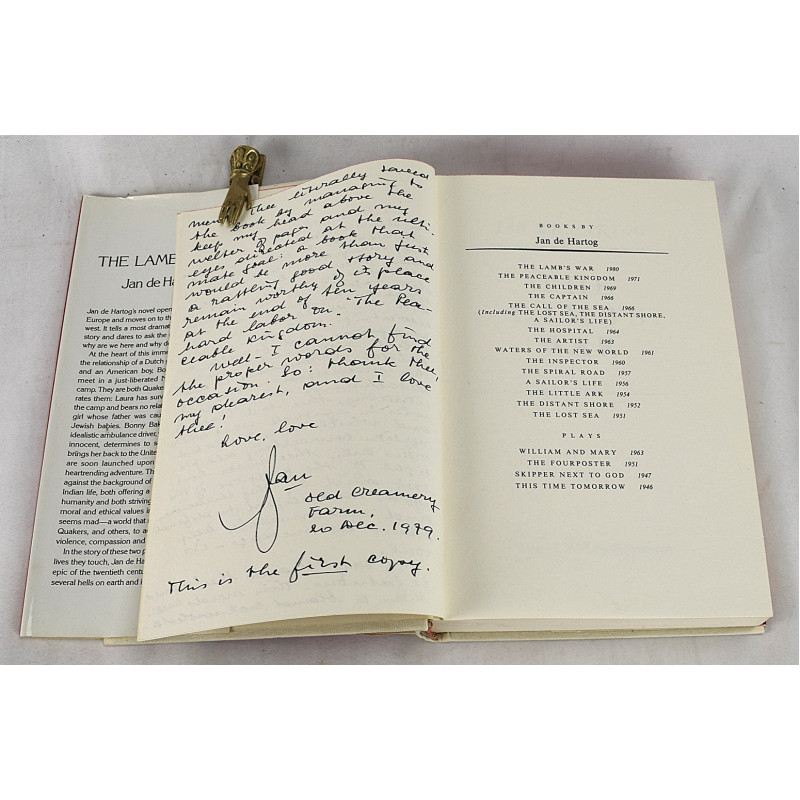 THE LAME
Jan de Ha
Jan de Hartog's novel open
Europe and moves on to th
west. It tells a most dramat
story and dares to ask the
why are we here and why d
At the heart of this imme
the relationship of a Dutch
and an American boy, Bo
meet in a just-liberated N
camp. They are both Quake
rates them: Laura has surviv
the camp and bears no relat
girl whose father was cau
Jewish babies. Bonny Bak
idealistic ambulance driver,
innocent, determines to s
brings her back to the Unite
are soon launched upon
heartrending adventure. Th
against the background of
Indian life, both offering a
humanity and both striving
moral and ethical values in
seems mad—a world that n
Quakers, and others, to ac
violence, compassion and
In the story of these two p
lives they touch, Jan de Ha
epic of the twentieth centu
several hells on earth and i
Thee literally saved
the book by managing to
keep my head above the
welter of paper and my
eyes directed at the ulti-
mate goal: a book that
would be more than just
a rattling good story and
remain worthy of its place
at the end of ten years
hard labor on "The Peac-
eable Kingdom.
Well - I cannot find
the proper words for the
occasion. So: thank thee,
my dearest, and I love
thee!
Love, love
Jan
Old Creamery
Farm,
20 Dec. 1979.
This is the first copy.
BOOKS BY
Jan de Hartog
THE LAMB'S WAR 1980
THE PEACEABLE KINGDOM 1971
THE CHILDREN 1969
THE CAPTAIN 1966
THE CALL OF THE SEA 1966
(Including THE LOST SEA, THE DISTANT SHORE,
A SAILOR'S LIFE)
THE HOSPITAL 1964
THE ARTIST 1963
WATERS OF THE NEW WORLD 1961
THE INSPECTOR 1960
THE SPIRAL ROAD 1957
A SAILOR'S LIFE 1956
THE LITTLE ARK 1954
THE DISTANT SHORE 1952
THE LOST SEA 1951
PLAYS
WILLIAM AND MARY 1963
THE FOURPOSTER 1951
SKIPPER NEXT TO GOD 1947
THIS TIME TOMORROW 1946